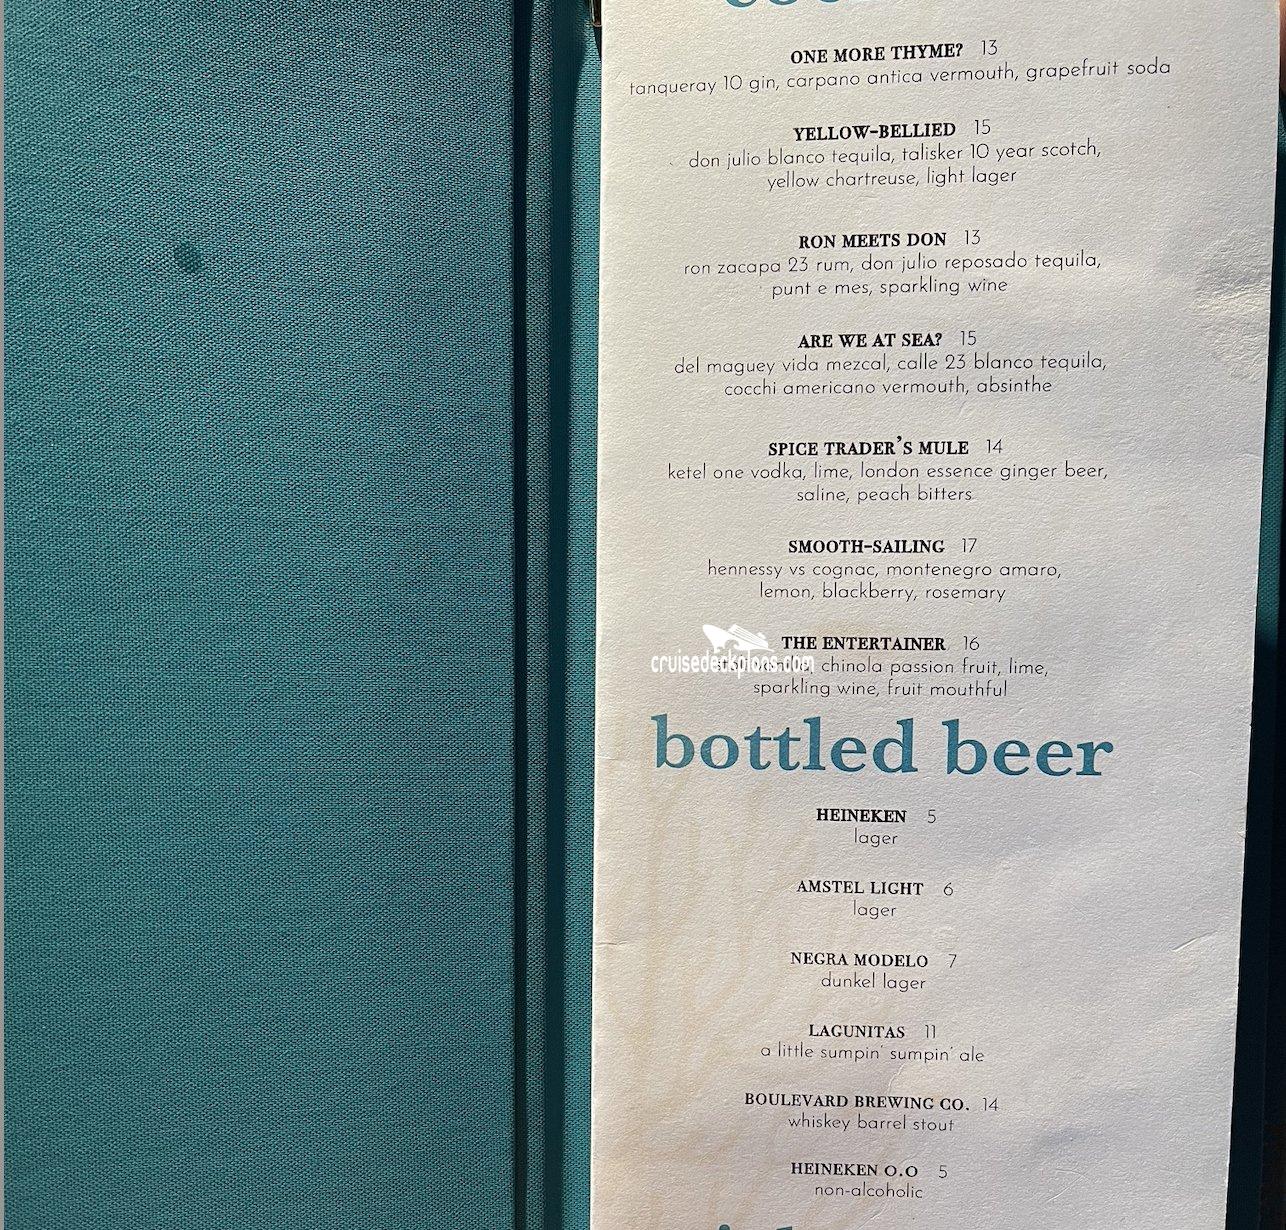 ONE MORE THYME? 13
tanqueray 10 gin, carpano antica vermouth, grapefruit soda
YELLOW-BELLIED 15
don julio blanco tequila, talisker 10 year scotch,
yellow chartreuse, light lager
RON MEETS DON 13
ron zacapa 23 rum, don julio reposado tequila,
punt e mes, sparkling wine
ARE WE AT SEA? 15
del maguey vida mezcal, calle 23 blanco tequila,
cocchi americano vermouth, absinthe
SPICE TRADER'S MULE 14
ketel one vodka, lime, london essence ginger beer,
saline, peach bitters
SMOOTH-SAILING 17
hennessy vs cognac, montenegro amaro,
lemon, blackberry, rosemary
THE ENTERTAINER 16
cruisedeckplans.com
chinola passion fruit, lime,
sparkling wine, fruit mouthful
bottled beer
HEINEKEN 5
lager
AMSTEL LIGHT 6
lager
NEGRA MODELO 7
dunkel lager
LAGUNITAS 11
a little sumpin' sumpin' ale
BOULEVARD BREWING CO. 14
whiskey barrel stout
HEINEKEN 0.0 5
non-alcoholic